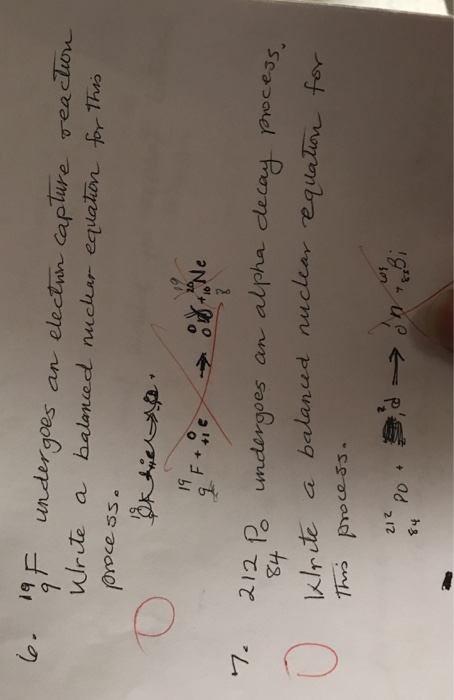 6. ¹⁹₉F undergoes an electron capture reaction
Write a balanced nuclear equation for this
process.
¹⁹₉F + ⁰₊₁e → ⁰₀γ + ²⁰₁₀Ne
19
8
7. ²¹²₈₄Po undergoes an alpha decay process.
Write a balanced nuclear equation for
this process.
²¹²₈₄PO + ²₁d → ¹₀n + Bi